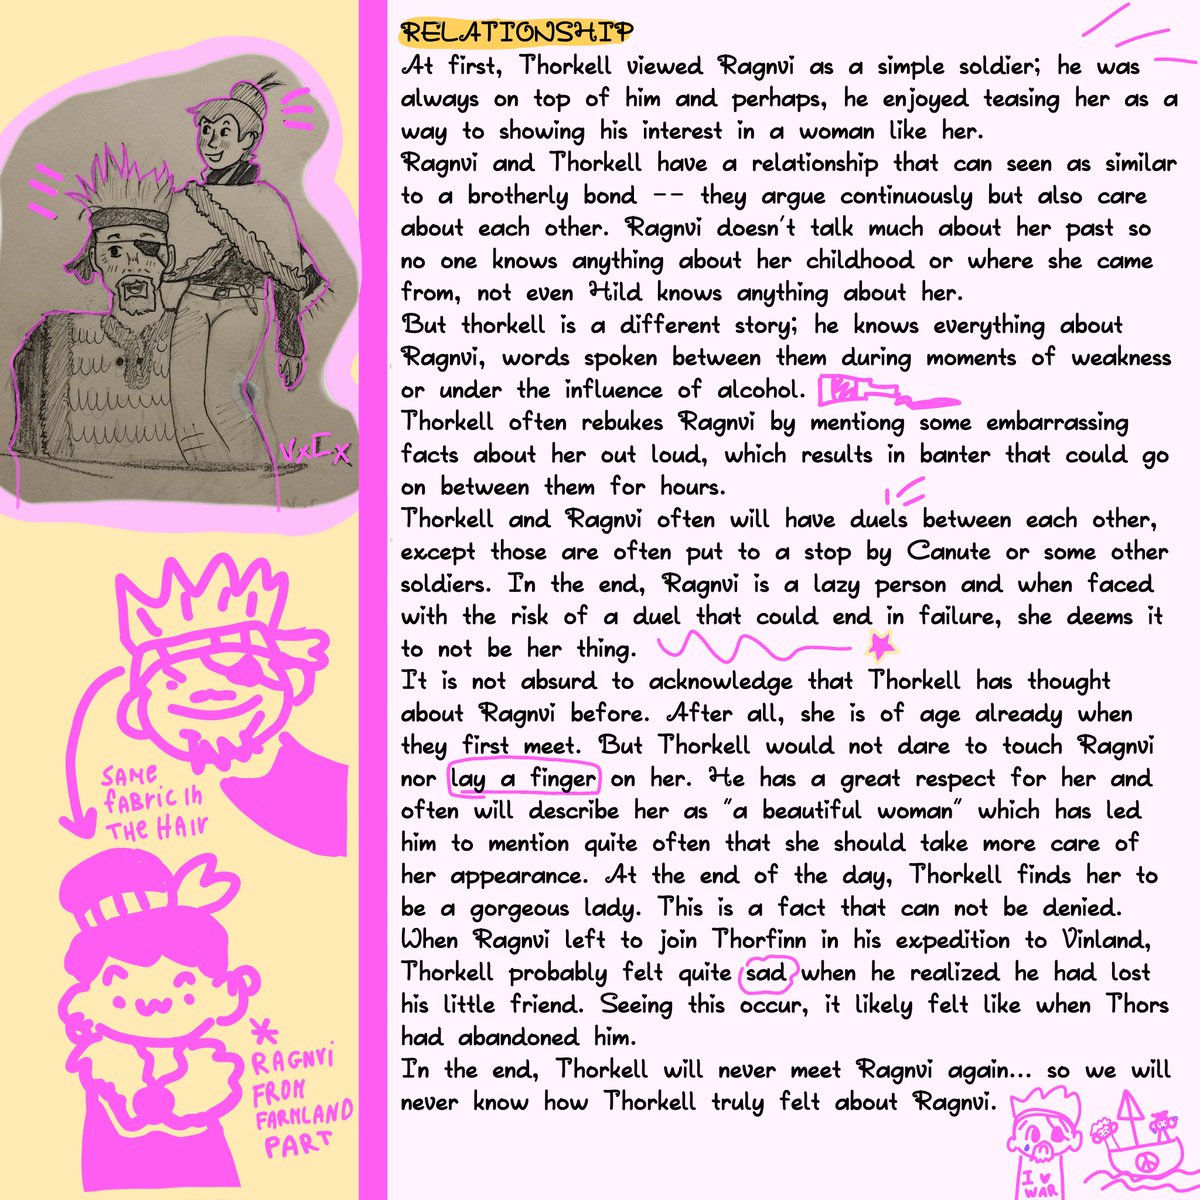 RELATIONSHIP
At first, Thorkell viewed Ragnvi as a simple soldier; he was
always on top of him and perhaps, he enjoyed teasing her as a
way to showing his interest in a woman like her.
Ragnvi and Thorkell have a relationship that can seen as similar
to a brotherly bond -- they argue continuously but also care
about each other. Ragnvi doesn't talk much about her past so
no one knows anything about her childhood or where she came
from, not even Hild knows anything about her.
But thorkell is a different story; he knows everything about
Ragnvi, words spoken between them during moments of weakness
or under the influence of alcohol.
Thorkell often rebukes Ragnvi by mentiong some embarrassing
facts about her out loud, which results in banter that could go
on between them for hours.
Thorkell and Ragnvi often will have duels between each other,
except those are often put to a stop by Canute or some other
soldiers. In the end, Ragnvi is a lazy person and when faced
with the risk of a duel that could end in failure, she deems it
to not be her thing.
It is not absurd to acknowledge that Thorkell has thought
about Ragnvi before. After all, she is of age already when
they first meet. But Thorkell would not dare to touch Ragnvi
nor lay a finger on her. He has a great respect for her and
often will describe her as "a beautiful woman" which has led
him to mention quite often that she should take more care of
her appearance. At the end of the day, Thorkell finds her to
be a gorgeous lady. This is a fact that can not be denied.
When Ragnvi left to join Thorfinn in his expedition to Vinland,
Thorkell probably felt quite sad when he realized he had lost
his little friend. Seeing this occur, it likely felt like when Thors
had abandoned him.
In the end, Thorkell will never meet Ragnvi again... so we will
never know how Thorkell truly felt about Ragnvi.
VxCx
SAME
FABRIC IN
THE HAIR
* RAGNVI
FROM
FARMLAND
PART
I ♥
WAR